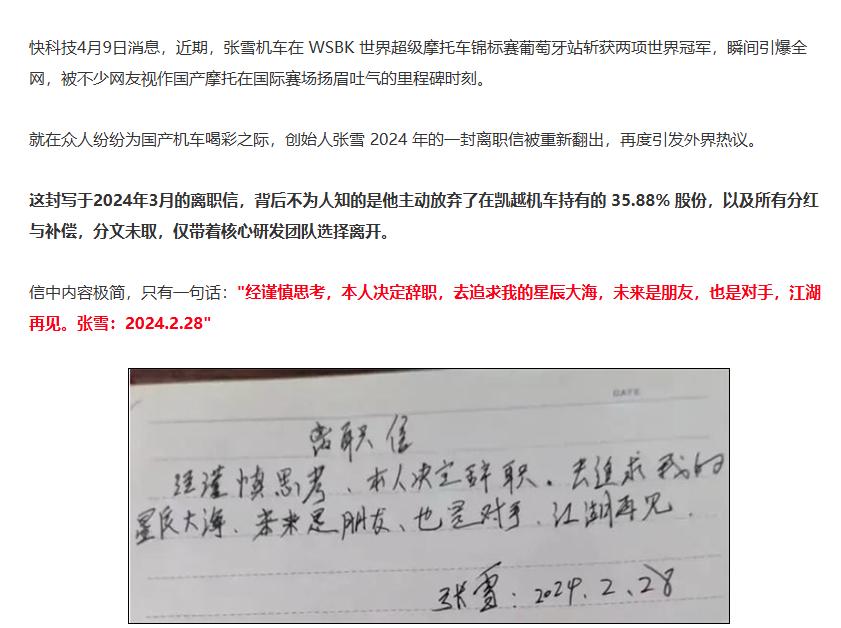 快科技4月9日消息，近期，张雪机车在 WSBK 世界超级摩托车锦标赛葡萄牙站斩获两项世界冠军，瞬间引爆全
网，被不少网友视作国产摩托在国际赛场扬眉吐气的里程碑时刻。
就在众人纷纷为国产机车喝彩之际，创始人张雪 2024 年的一封离职信被重新翻出，再度引发外界热议。
这封写于2024年3月的离职信，背后不为人知的是他主动放弃了在凯越机车持有的 35.88% 股份，以及所有分红
与补偿，分文未取，仅带着核心研发团队选择离开。
信中内容极简，只有一句话："经谨慎思考，本人决定辞职，去追求我的星辰大海，未来是朋友，也是对手，江湖
再见。张雪：2024.2.28"
DATE
离职信
经谨慎思考、本人决定辞职。去追求我的
星辰大海、未来是朋友、也是对手、江湖再见.
张雪：2024.2.28